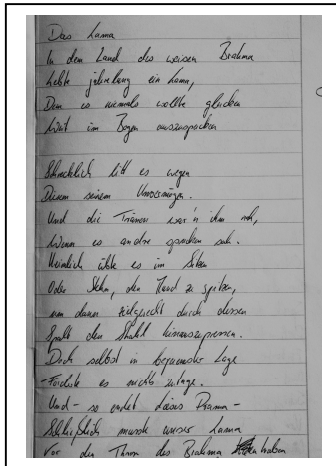 Das Lama
In dem Land des weisen Brahma
Lebte jahrelang ein Lama,
Dem es niemals wollte glücken
Weit im Bogen auszuspucken
Schrecklich litt es wegen
Diesem seinem Unvermögen.
Und die Tränen war'n ihm nah,
Wenn es andre spucken sah.
Heimlich übte es im Sitzen
Oder Stehn, den Mund zu spitzen,
um dann zielgerecht durch dessen
Spalt den Strahl hinauszupressen.
Doch selbst in bequemster Lage
Förderte es nichts zutage.
Und - so endet dieses Drama -
Schließlich musste unser Lama
Vor den Thron des Brahma traben